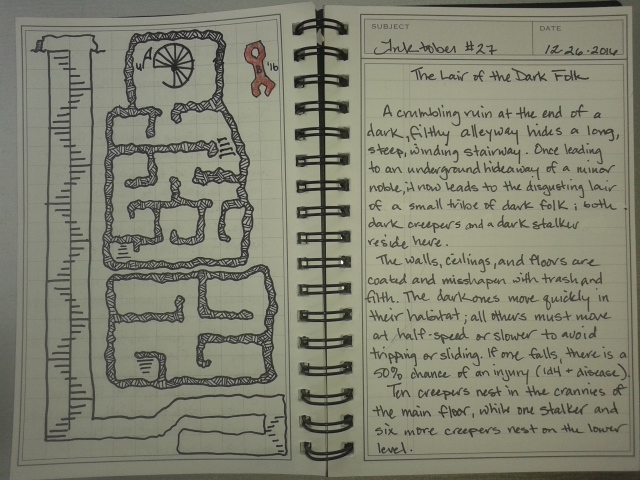 "A
'16
SUBJECT
DATE
Inktober #27
12-26-2016
The Lair of the Dark Folk
A crumbling ruin at the end of a
dark, filthy alleyway hides a long,
steep, winding stairway. Once leading
to an underground hideaway of a minor
noble, it now leads to the disgusting lair
of a small tribe of dark folk; both
dark creepers and a dark stalker
reside here.
The walls, ceilings, and floors are
coated and misshapen with trash and
filth. The dark ones move quickly in
their habitat; all others must move
at half-speed or slower to avoid
tripping or sliding. If one falls, there is a
50% chance of an injury (1d4 + disease).
Ten creepers nest in the crannies of
the main floor, while one stalker and
six more creepers nest on the lower
level.